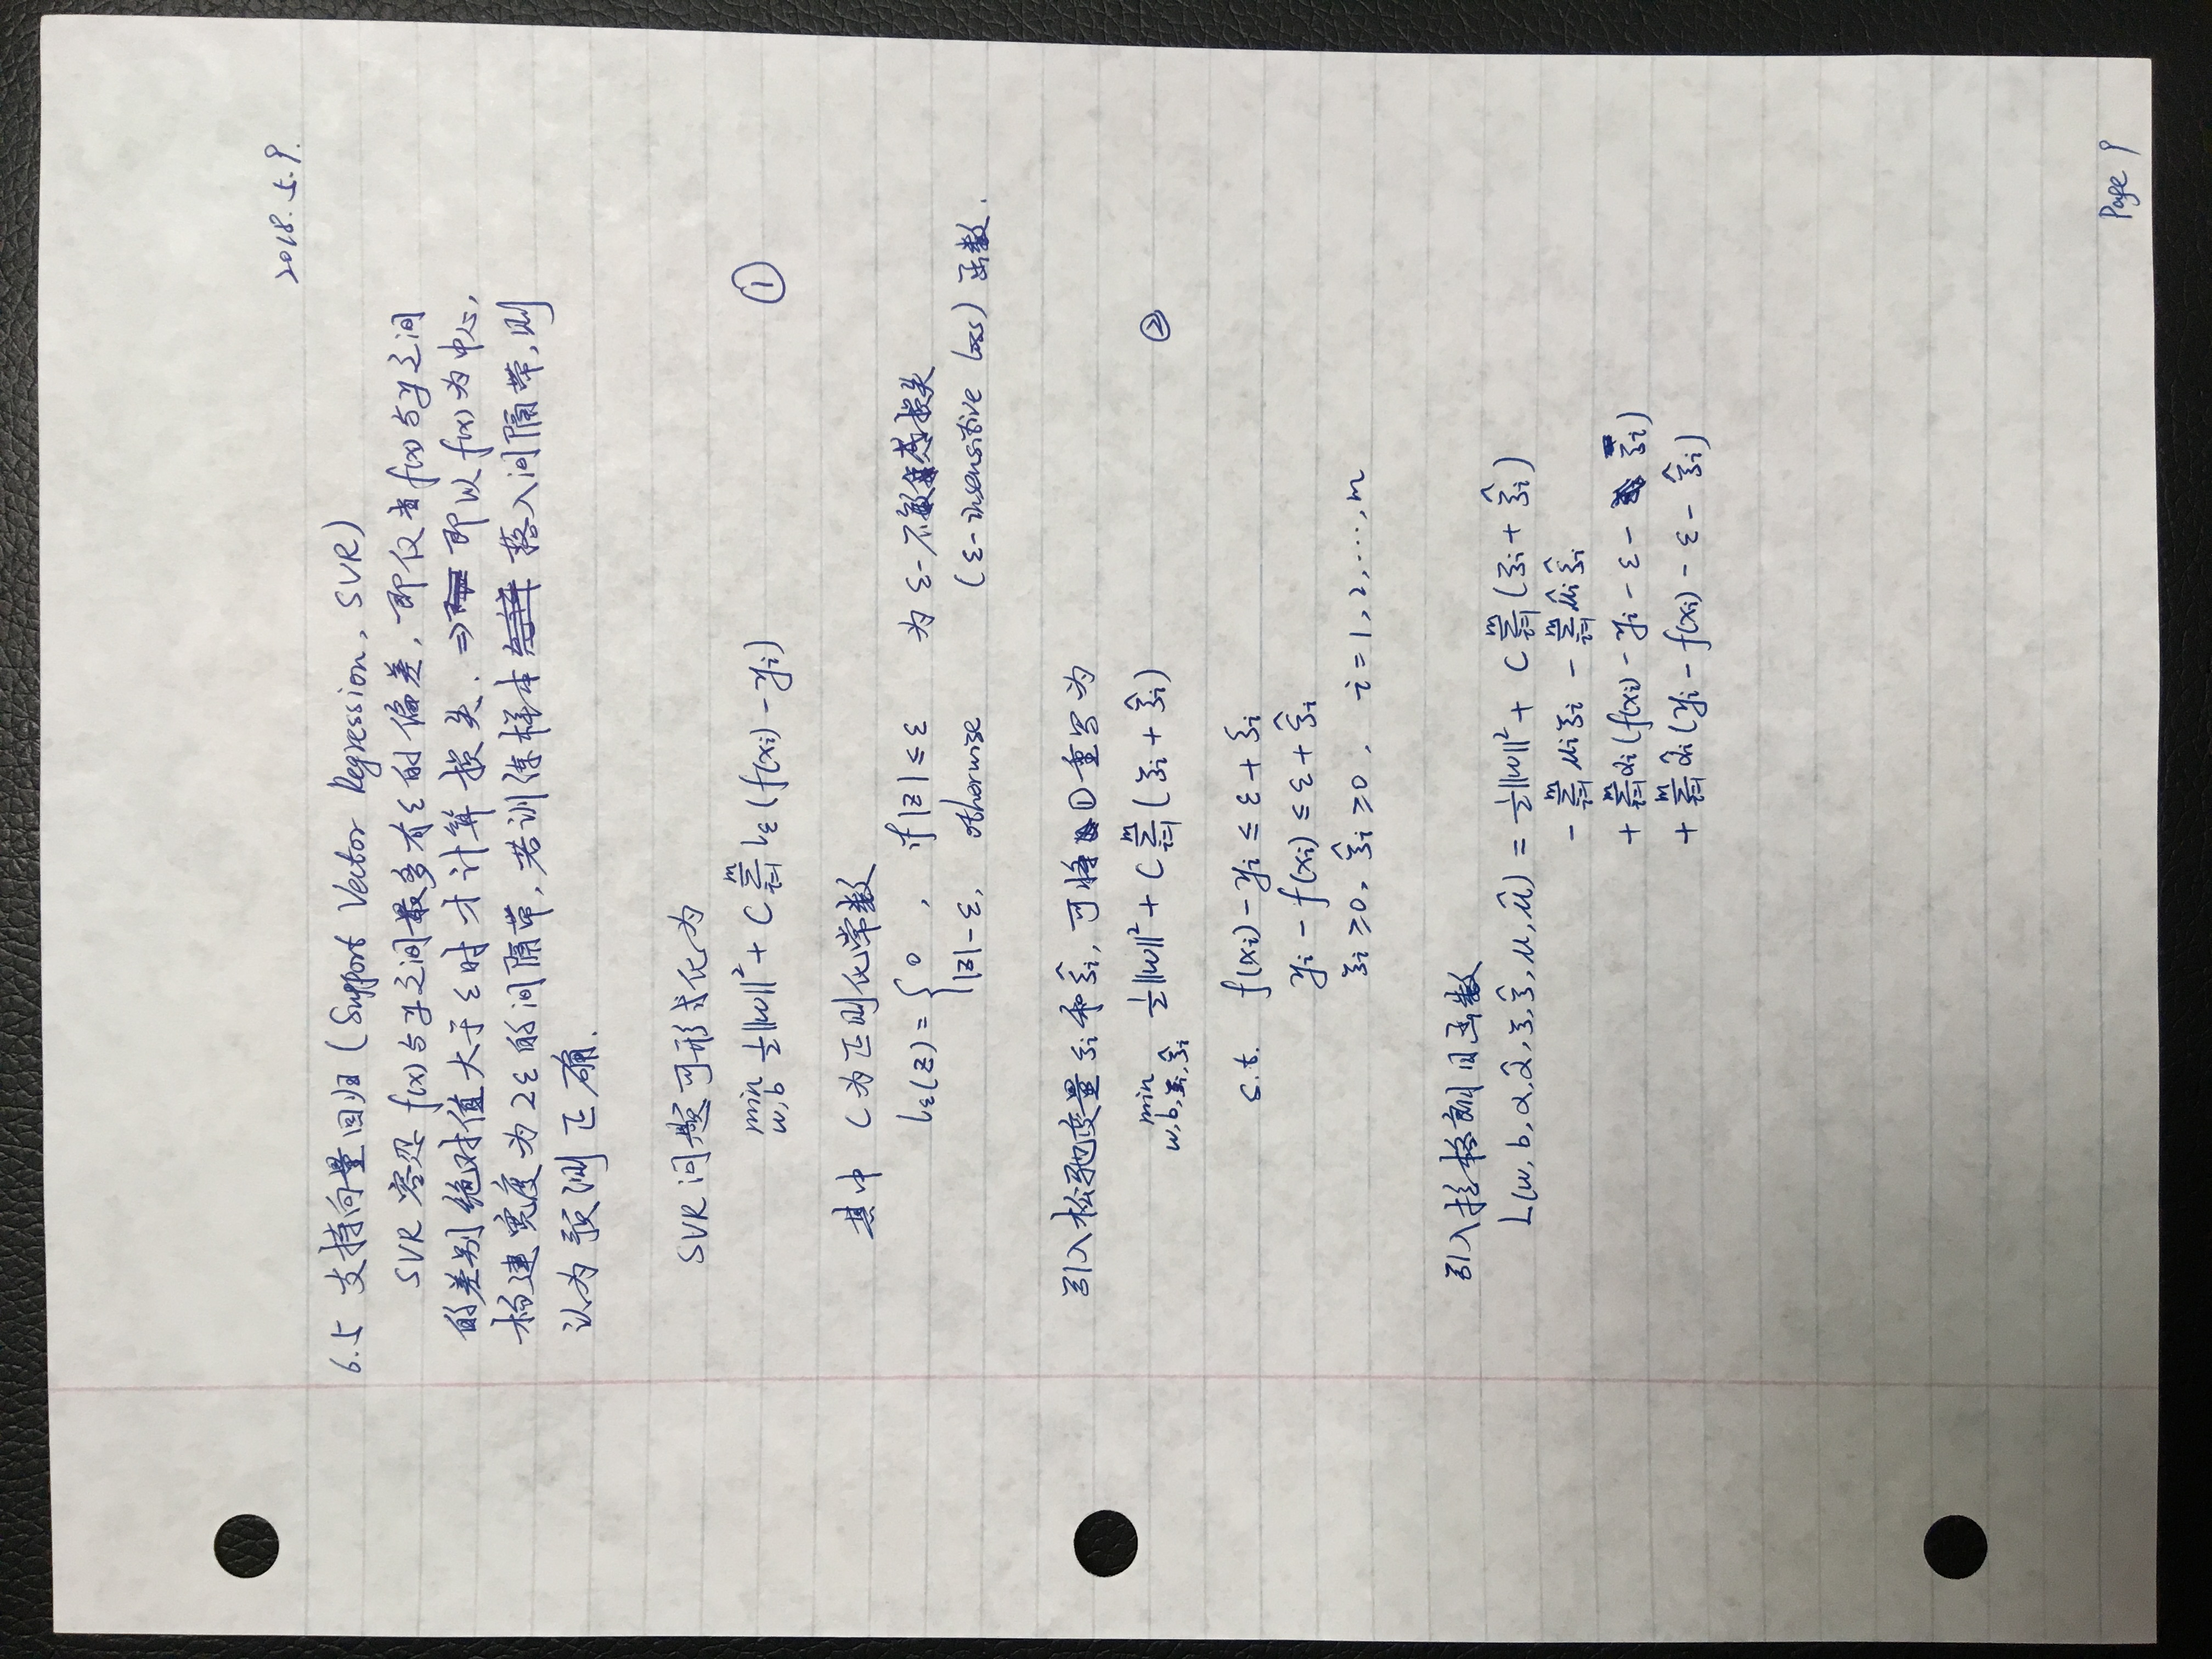 2018.5.9.
6.5 支持向量回归 (Support Vector Regression, SVR)
SVR 容忍 f(x)与y之间最多有ε的偏差, 即仅当f(x)与y之间
的差别绝对值大于ε时才计算损失. ⇒ 即以f(x)为中心,
构建宽度为2ε的间隔带, 若训练样本 落入间隔带, 则
认为预测正确.
SVR问题可形式化为
min_{w,b} ½||w||² + C Σ_{i=1}^{m} l_ε (f(x_i) - y_i) ①
其中 C为正则化常数
l_ε(z) = { 0 , if |z| ≤ ε 为 ε-不敏感损失
|z| - ε, otherwise (ε-insensitive loss) 函数.
引入松弛变量 ξ_i 和 ξ̂_i, 可将①重写为
min_{w,b,ξ_i,ξ̂_i} ½||w||² + C Σ_{i=1}^{m} (ξ_i + ξ̂_i) ②
s.t. f(x_i) - y_i ≤ ε + ξ_i
y_i - f(x_i) ≤ ε + ξ̂_i
ξ_i ≥ 0, ξ̂_i ≥ 0, i = 1, 2, ..., m
引入拉格朗日函数
L(w, b, α, α̂, ξ, ξ̂, μ, μ̂) = ½||w||² + C Σ_{i=1}^{m} (ξ_i + ξ̂_i)
- Σ_{i=1}^{m} μ_i ξ_i - Σ_{i=1}^{m} μ̂_i ξ̂_i
+ Σ_{i=1}^{m} α_i (f(x_i) - y_i - ε - ξ_i)
+ Σ_{i=1}^{m} α̂_i (y_i - f(x_i) - ε - ξ̂_i)
Page 9